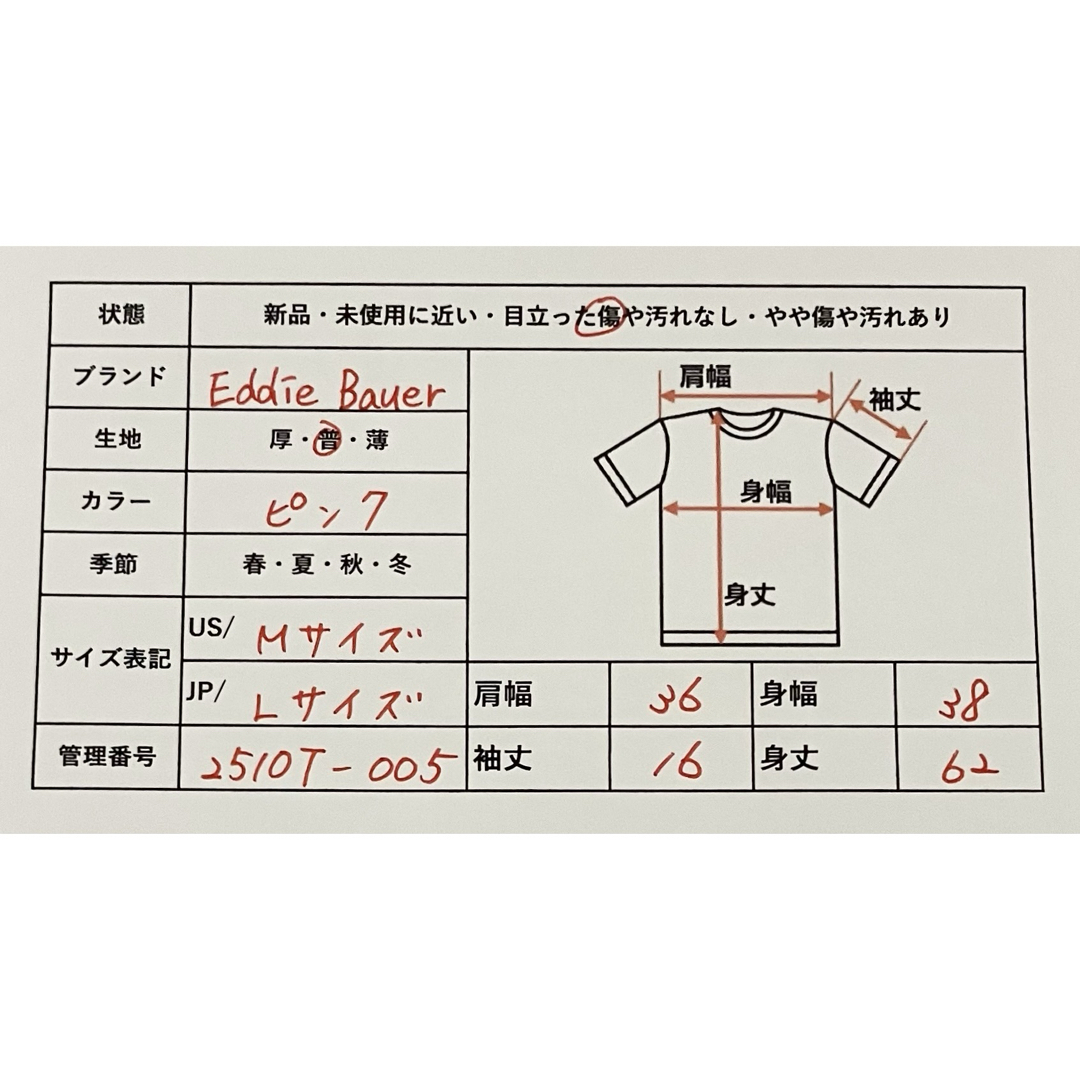 状態 新品・未使用に近い・目立った傷や汚れなし・やや傷や汚れあり
ブランド Eddie Bauer
生地 厚・普・薄
カラー ピンク
季節 春・夏・秋・冬
サイズ表記 US/ Mサイズ
JP/ Lサイズ
管理番号 2510T-005
肩幅
袖丈
身幅
身丈
肩幅 36 身幅 38
袖丈 16 身丈 62